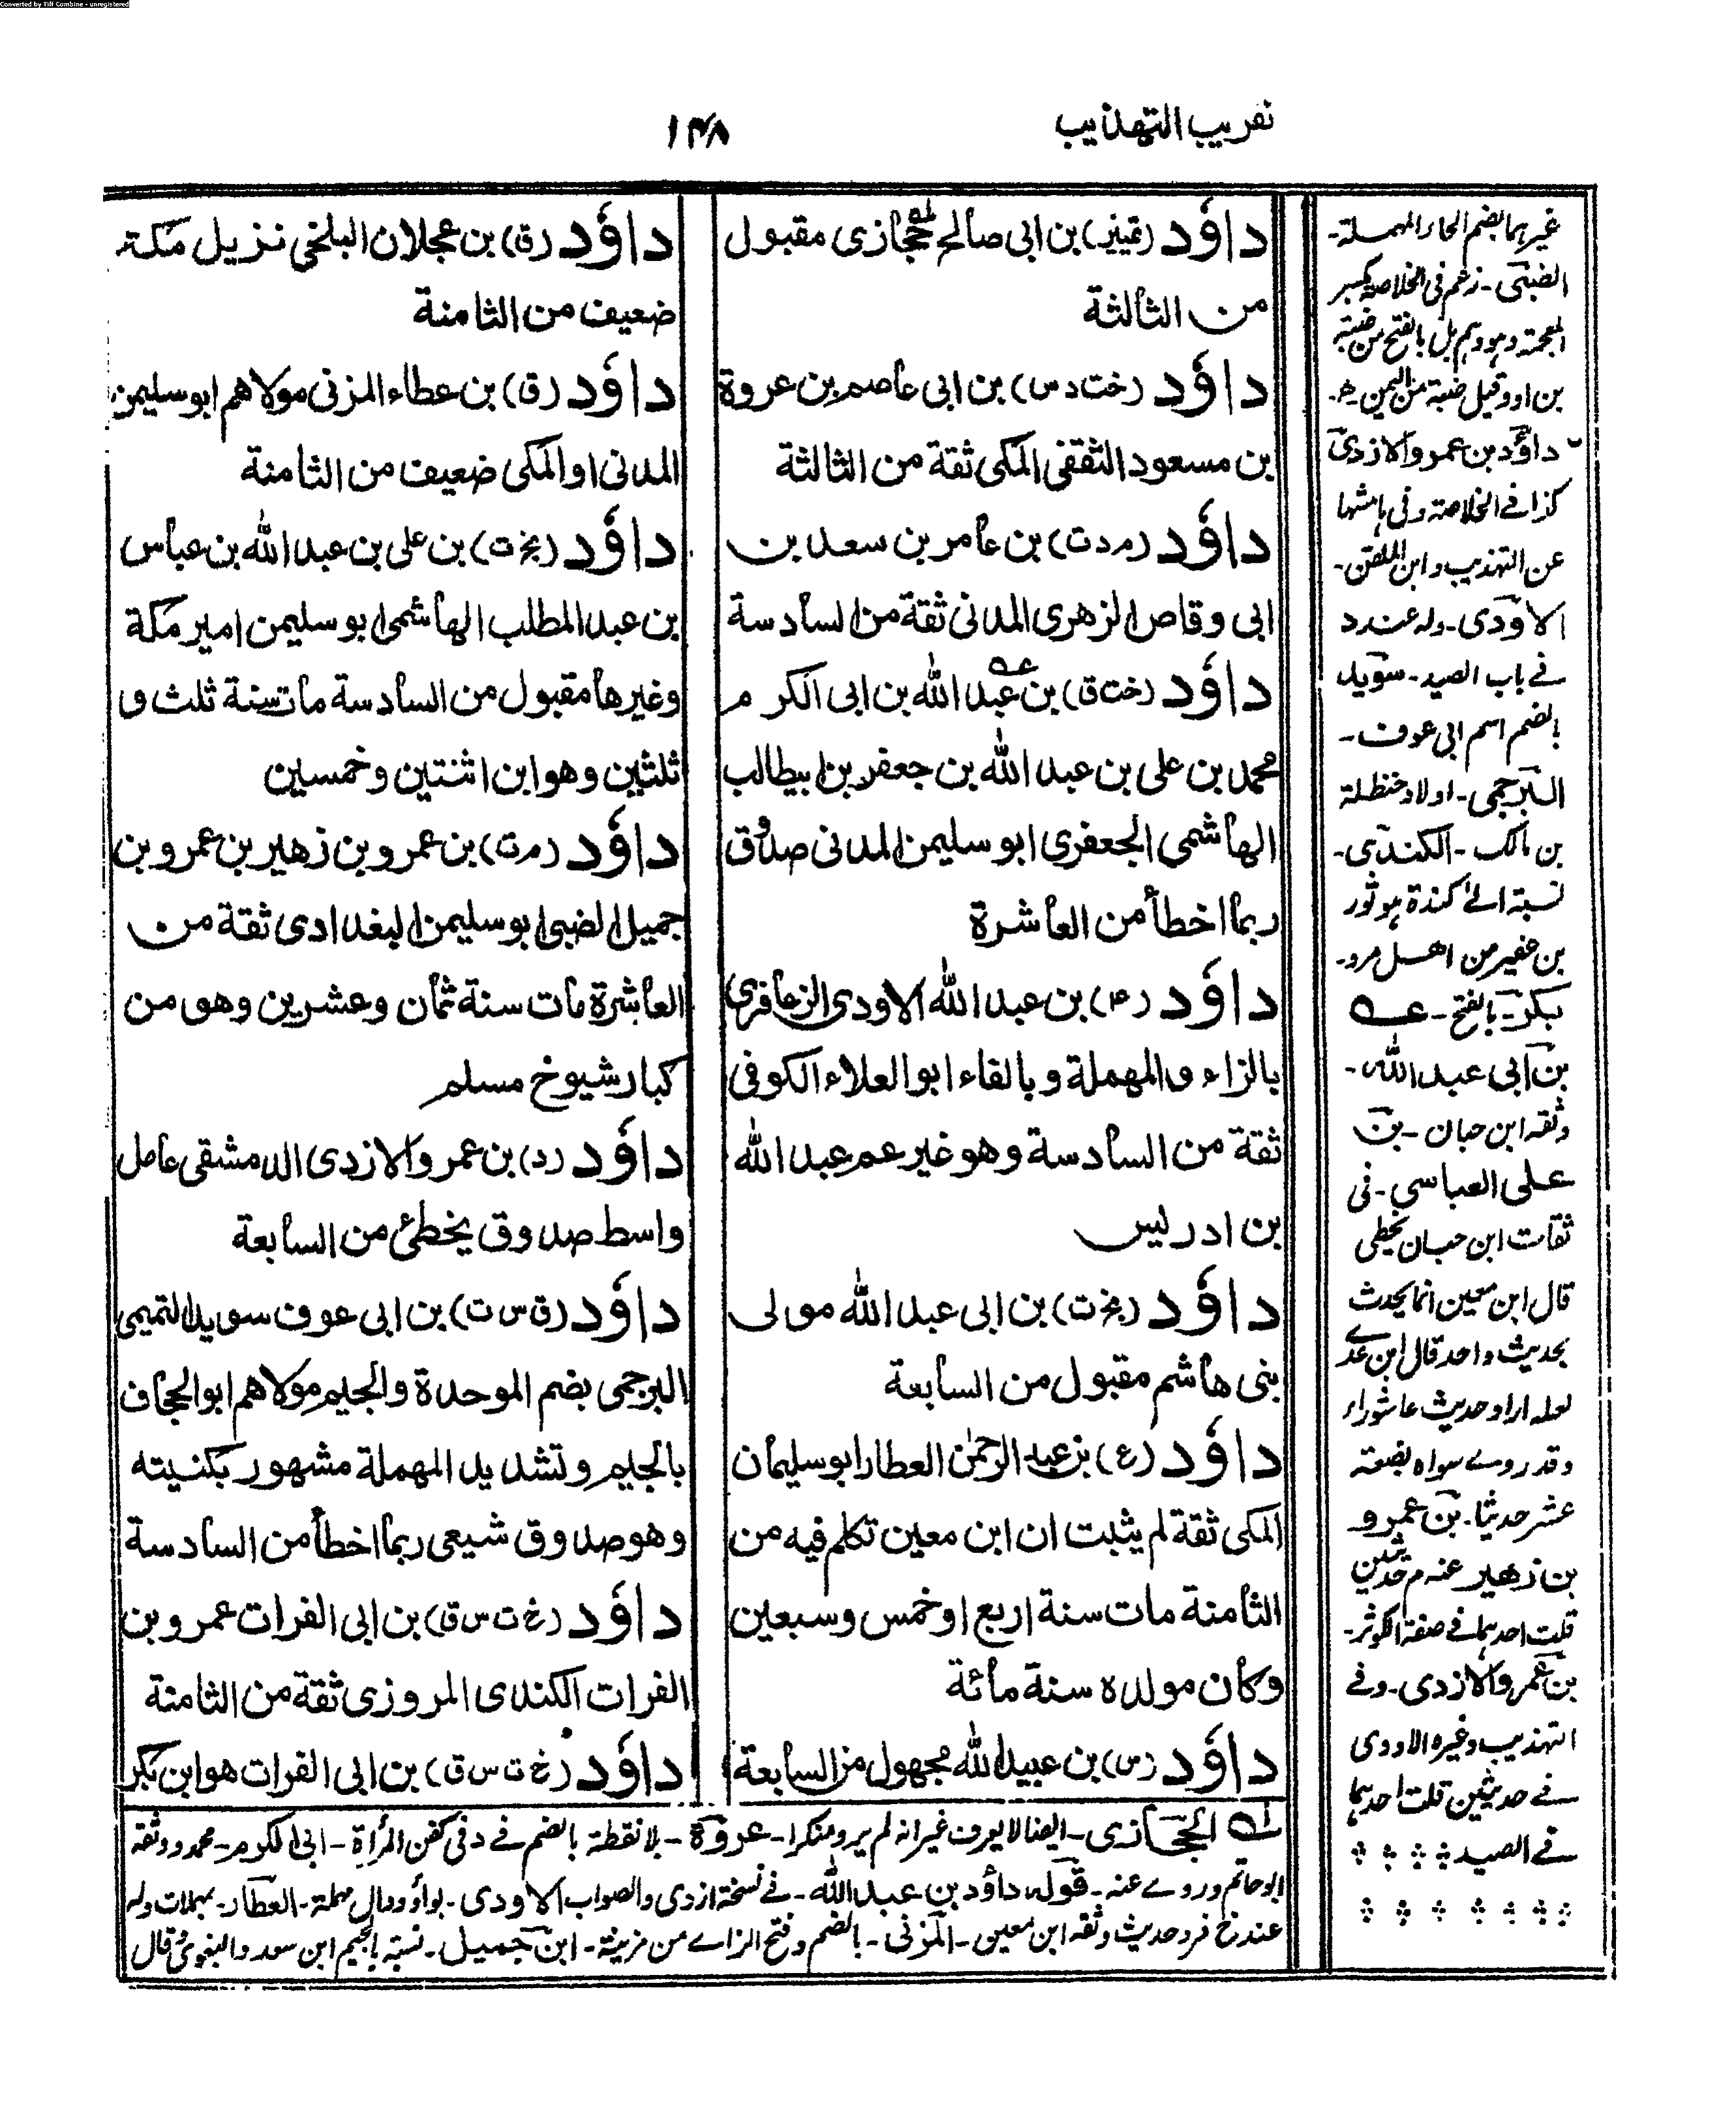 Converted by Tiff Combine - unregistered
تقریب التهذیب
۱۴۸
داؤد (تمییز) بن ابی صالح حجازی مقبول
من الثالثة
داؤد (خت د س) بن ابی عاصم بن عروة
بن مسعود الثقفی المکی ثقة من الثالثة
داؤد (م د ت) بن عامر بن سعد بن
ابی وقاص الزهری المدنی ثقة من السادسة
داؤد (خت ق) بن عبد الله بن ابی الکرم
محمد بن علی بن عبد الله بن جعفر بن ابیطالب
الهاشمی الجعفری ابو سلیمن المدنی صدوق
ربما اخطأ من العاشرة
داؤد (۴) بن عبد الله الاودی الزعافری
بالزاء و المهملة وبالفاء ابو العلاء الکوفی
ثقة من السادسة وهو غیر عم عبد الله
بن ادریس
داؤد (بخ ت) بن ابی عبد الله مولی
بنی هاشم مقبول من السابعة
داؤد (ع) بن عبد الرحمٰن العطار ابو سلیمان
المکی ثقة لم یثبت ان ابن معین تکلم فیه من
الثامنة مات سنة اربع او خمس وسبعین
وکان مولده سنة مائة
داؤد (س) بن عبید الله مجهول من السابعة
داؤد (ق) بن عجلان البلخی نزیل مکة
ضعیف من الثامنة
داؤد (ق) بن عطاء المزنی مولاهم ابو سلیمن
المدنی او المکی ضعیف من الثامنة
داؤد (بخ ت) بن علی بن عبد الله بن عباس
بن عبد المطلب الهاشمی ابو سلیمن امیر مکة
وغیرها مقبول من السادسة مات سنة ثلث و
ثلثین وهو ابن اثنتین وخمسین
داؤد (م ت) بن عمرو بن زهیر بن عمرو بن
جمیل الضبی ابو سلیمن البغدادی ثقة من
العاشرة مات سنة ثمان وعشرین وهو من
کبار شیوخ مسلم
داؤد (د) بن عمرو الازدی الدمشقی عامل
واسط صدوق یخطئ من السابعة
داؤد (ق س ت) بن ابی عوف سوید التمیمی
البرجمی بضم الموحدة والجیم مولاهم ابو الجحاف
بالجیم وتشدید المهملة مشهور بکنیته
وهو صدوق شیعی ربما اخطأ من السادسة
داؤد (خ ت س ق) بن ابی الفرات عمرو بن
الفرات الکندی المروزی ثقة من الثامنة
داؤد (خ ت س ق) بن ابی الفرات هو ابن بکر
غیرہما بضم الحاء المہملة۔
الضبی۔ زعم فی الخلاصة بکسر
المعجمة وہو وہم بل بالفتح من ضبة
بن اد وقیل ضبة من الیمن
داؤد بن عمرو الازدی
کذا فے الخلاصة وفی ہامشہا
عن التہذیب و ابن الملقن۔
الاودی۔ وله عند د
فے باب الصید۔ سوید
بالضم اسم ابی عوف۔
البرجمی۔ اولاد حنظلة
بن مالک۔ الکندی۔
نسبة الےٰ کندة ہو ثور
بن عفیر من اھل مرو۔
بکر۔ بالفتح۔ عه
بن ابی عبد الله۔
وثقه ابن حبان۔ بن
علی العباسی۔ فی
ثقات ابن حبان یخطی
قال ابن معین انما یحدث
بحدیث واحد قال ابن عدے
لعله اراد حدیث عاشوراء
وقد روے سواہ بضعة
عشر حدیثا۔ بن عمرو
بن زھیر عنه م حدیثین
قلت احدہما فے صفة الکوثر۔
بن عمرو الازدی۔ وفے
التہذیب وغیرہ الاودی
فے حدیثین قلت احدہما
فے الصید
له الحجازی۔ ایضا لا یعرف غیر انه لم یرو منکرا۔ عروة۔ بلا نقطة بالضم فے د فی کفن المرأة۔ ابی الکرم۔ محمد ووثقه
ابو حاتم وروے عنه۔ قوله داؤد بن عبد الله۔ فے نسخة ازدی والصواب الاودی۔ بواؤ ودال مہملة۔ العطار۔ بہملات وله
عند خ فرد حدیث وثقه ابن معین۔ المزنی۔ بالضم وفتح الزاے من مزینة۔ ابن جمیل۔ نسبة بالجیم ابن سعد والبغوی قال